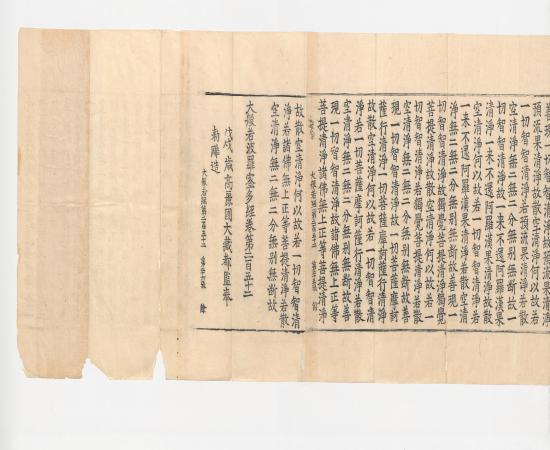 善現一切智智清淨故預流果清淨
預流果清淨故散空清淨何以故若
一切智智清淨若預流果清淨若散
空清淨無二無二分無別無斷故一
切智智清淨故一來不還阿羅漢果
清淨一來不還阿羅漢果清淨故散
空清淨何以故若一切智智清淨若
一來不還阿羅漢果清淨若散空清
淨無二無二分無別無斷故善現一
切智智清淨故獨覺菩提清淨獨覺
菩提清淨故散空清淨何以故若一
切智智清淨若獨覺菩提清淨若散
空清淨無二無二分無別無斷故善
現一切智智清淨故一切菩薩摩訶
薩行清淨一切菩薩摩訶薩行清淨
故散空清淨何以故若一切智智清
淨若一切菩薩摩訶薩行清淨若散
空清淨無二無二分無別無斷故善
現一切智智清淨故諸佛無上正等
菩提清淨諸佛無上正等菩提清淨
大般若經第二百五十二
故散空清淨何以故若一切智智清
淨若諸佛無上正等菩提清淨若散
空清淨無二無二分無別無斷故
大般若波羅蜜多經卷第二百五十二
戊戌歲高麗國大藏都監奉
勅雕造
大般若經第二百五十二